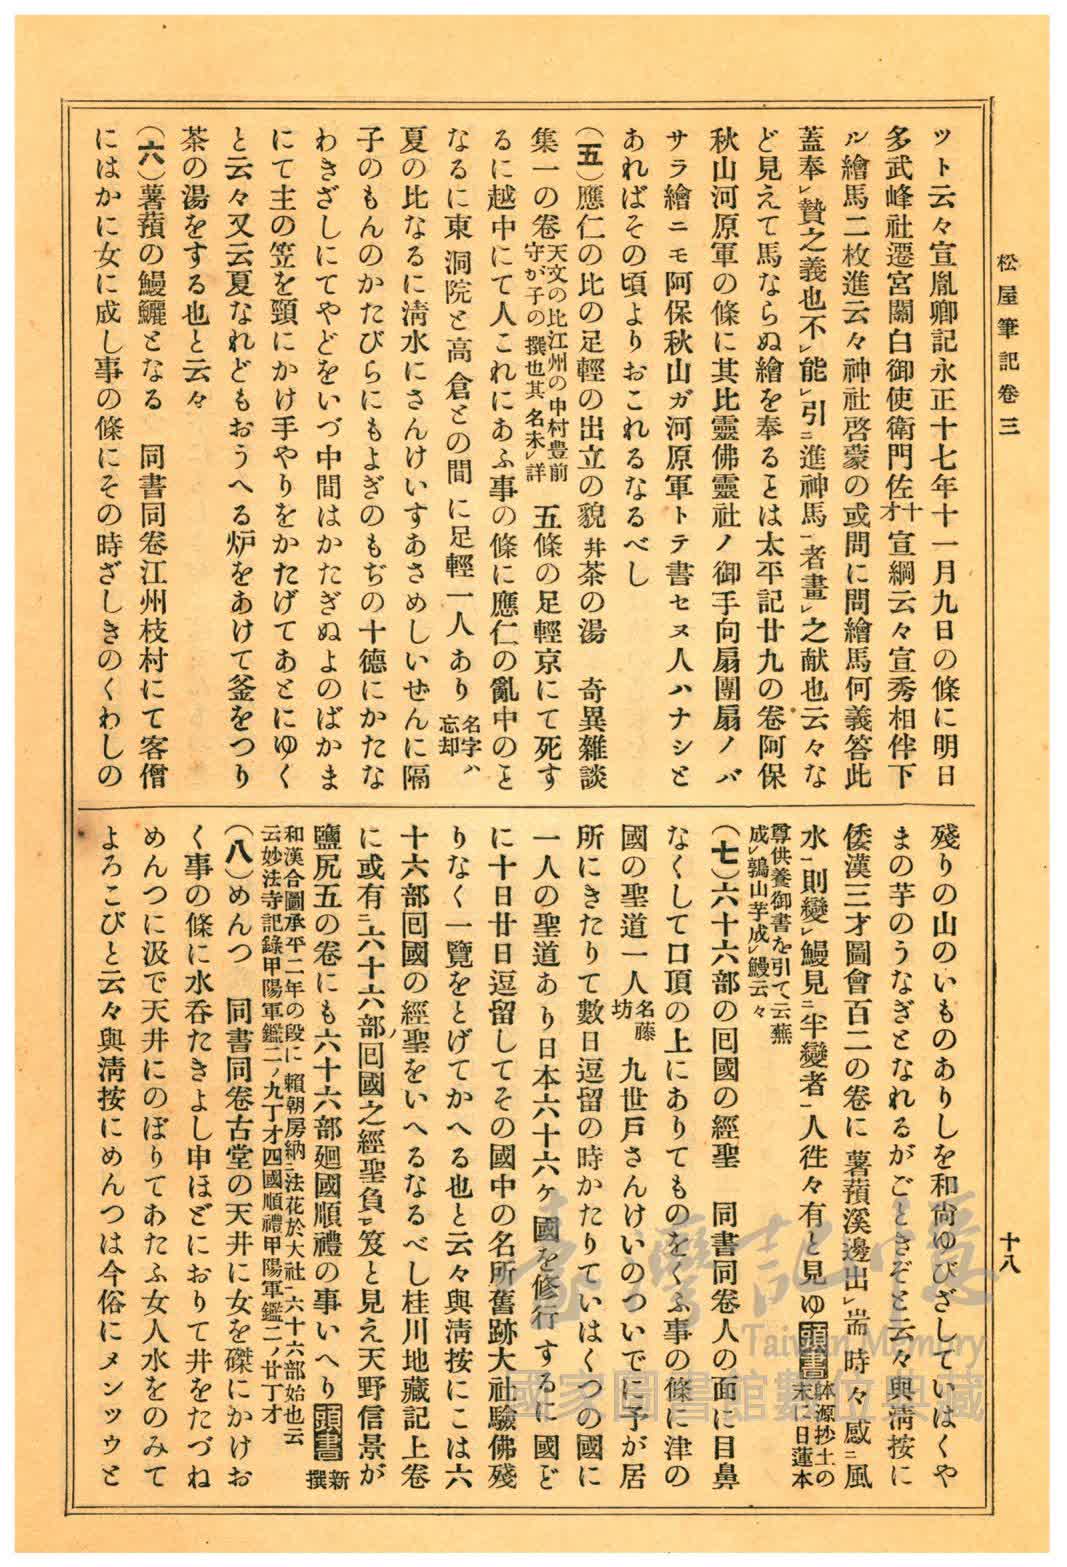 松屋筆記卷三
十八
ツト云々宣胤卿記永正十七年十一月九日の條に明日
多武峰社遷宮關白御使衛門佐十才宣綱云々宣秀相伴下
ル繪馬二枚進云々神社啓蒙の或問に問繪馬何義答此
蓋奉レ贄之義也不レ能レ引ニ進神馬一者畫レ之献也云々な
ど見えて馬ならぬ繪を奉るとは太平記廿九の卷阿保
秋山河原軍の條に其比靈佛靈社ノ御手向扇團扇ノバ
サラ繪ニモ阿保秋山ガ河原軍トテ書セヌ人ハナシと
あればその頃よりおこれるなるべし
（五）應仁の比の足輕の出立の貌井茶の湯　奇異雜談
集一の卷天文の比江州の中村豊前守が子の撰也其名未レ詳　五條の足輕京にて死す
るに越中にて人これにあふ事の條に應仁の亂中のと
なるに東洞院と高倉との間に足輕一人あり名字ハ忘却
夏の比なるに淸水にさんけいすあさめしいぜんに隔
子のもんのかたびらにもよぎのもぢの十德にかたな
わきざしにてやどをいづ中間はかたぎぬよのばかま
にて主の笠を頸にかけ手やりをかたげてあとにゆく
と云々又云夏なれどもおうへる炉をあけて釜をつり
茶の湯をする也と云々
（六）薯蕷の鰻鱺となる　同書同卷江州枝村にて客僧
にはかに女に成し事の條にその時ざしきのくわしの
殘りの山のいものありしを和尙ゆびざしていはくや
まの芋のうなぎとなれるがごときぞと云々與淸按に
倭漢三才圖會百二の卷に薯蕷溪邊出レ耑時々感ニ風
水一則變レ鰻見ニ半變者一人徃々有と見ゆ頭書鉢源抄土の末に日蓮本
尊供養御書を引て云蕪成レ鶉山芋成レ鰻云々
（七）六十六部の囘國の經聖　同書同卷人の面に目鼻
なくして口頂の上にありてものをくふ事の條に津の
國の聖道一人名藤坊　九世戸さんけいのついでに予が居
所にきたりて數日逗留の時かたりていはくつの國に
一人の聖道あり日本六十六ケ國を修行するに國ど
に十日廿日逗留してその國中の名所舊跡大社驗佛殘
りなく一覽をとげてかへる也と云々與淸按にこは六
十六部囘國の經ノ聖をいへるなるべし桂川地藏記上卷
に或有ニ六十六部囘國之經聖負一レ笈と見え天野信景が
鹽尻五の卷にも六十六部廻國順禮の事いへり頭書新撰
和漢合圖承平二年の段に賴朝房納ニ法花於大社一六十六部始也云
云妙法寺記錄甲陽軍鑑二ノ九丁オ四國順禮甲陽軍鑑二ノ廿丁オ
（八）めんつ　同書同卷古堂の天井に女を磔にかけお
く事の條に水呑たきよし申ほどにおりて井をたづね
めんつに汲で天井にのぼりてあたふ女人水をのみて
よろこびと云々與淸按にめんつは今俗にメンツウと
臺灣記憶
Taiwan Memory
國家圖書館數位典藏